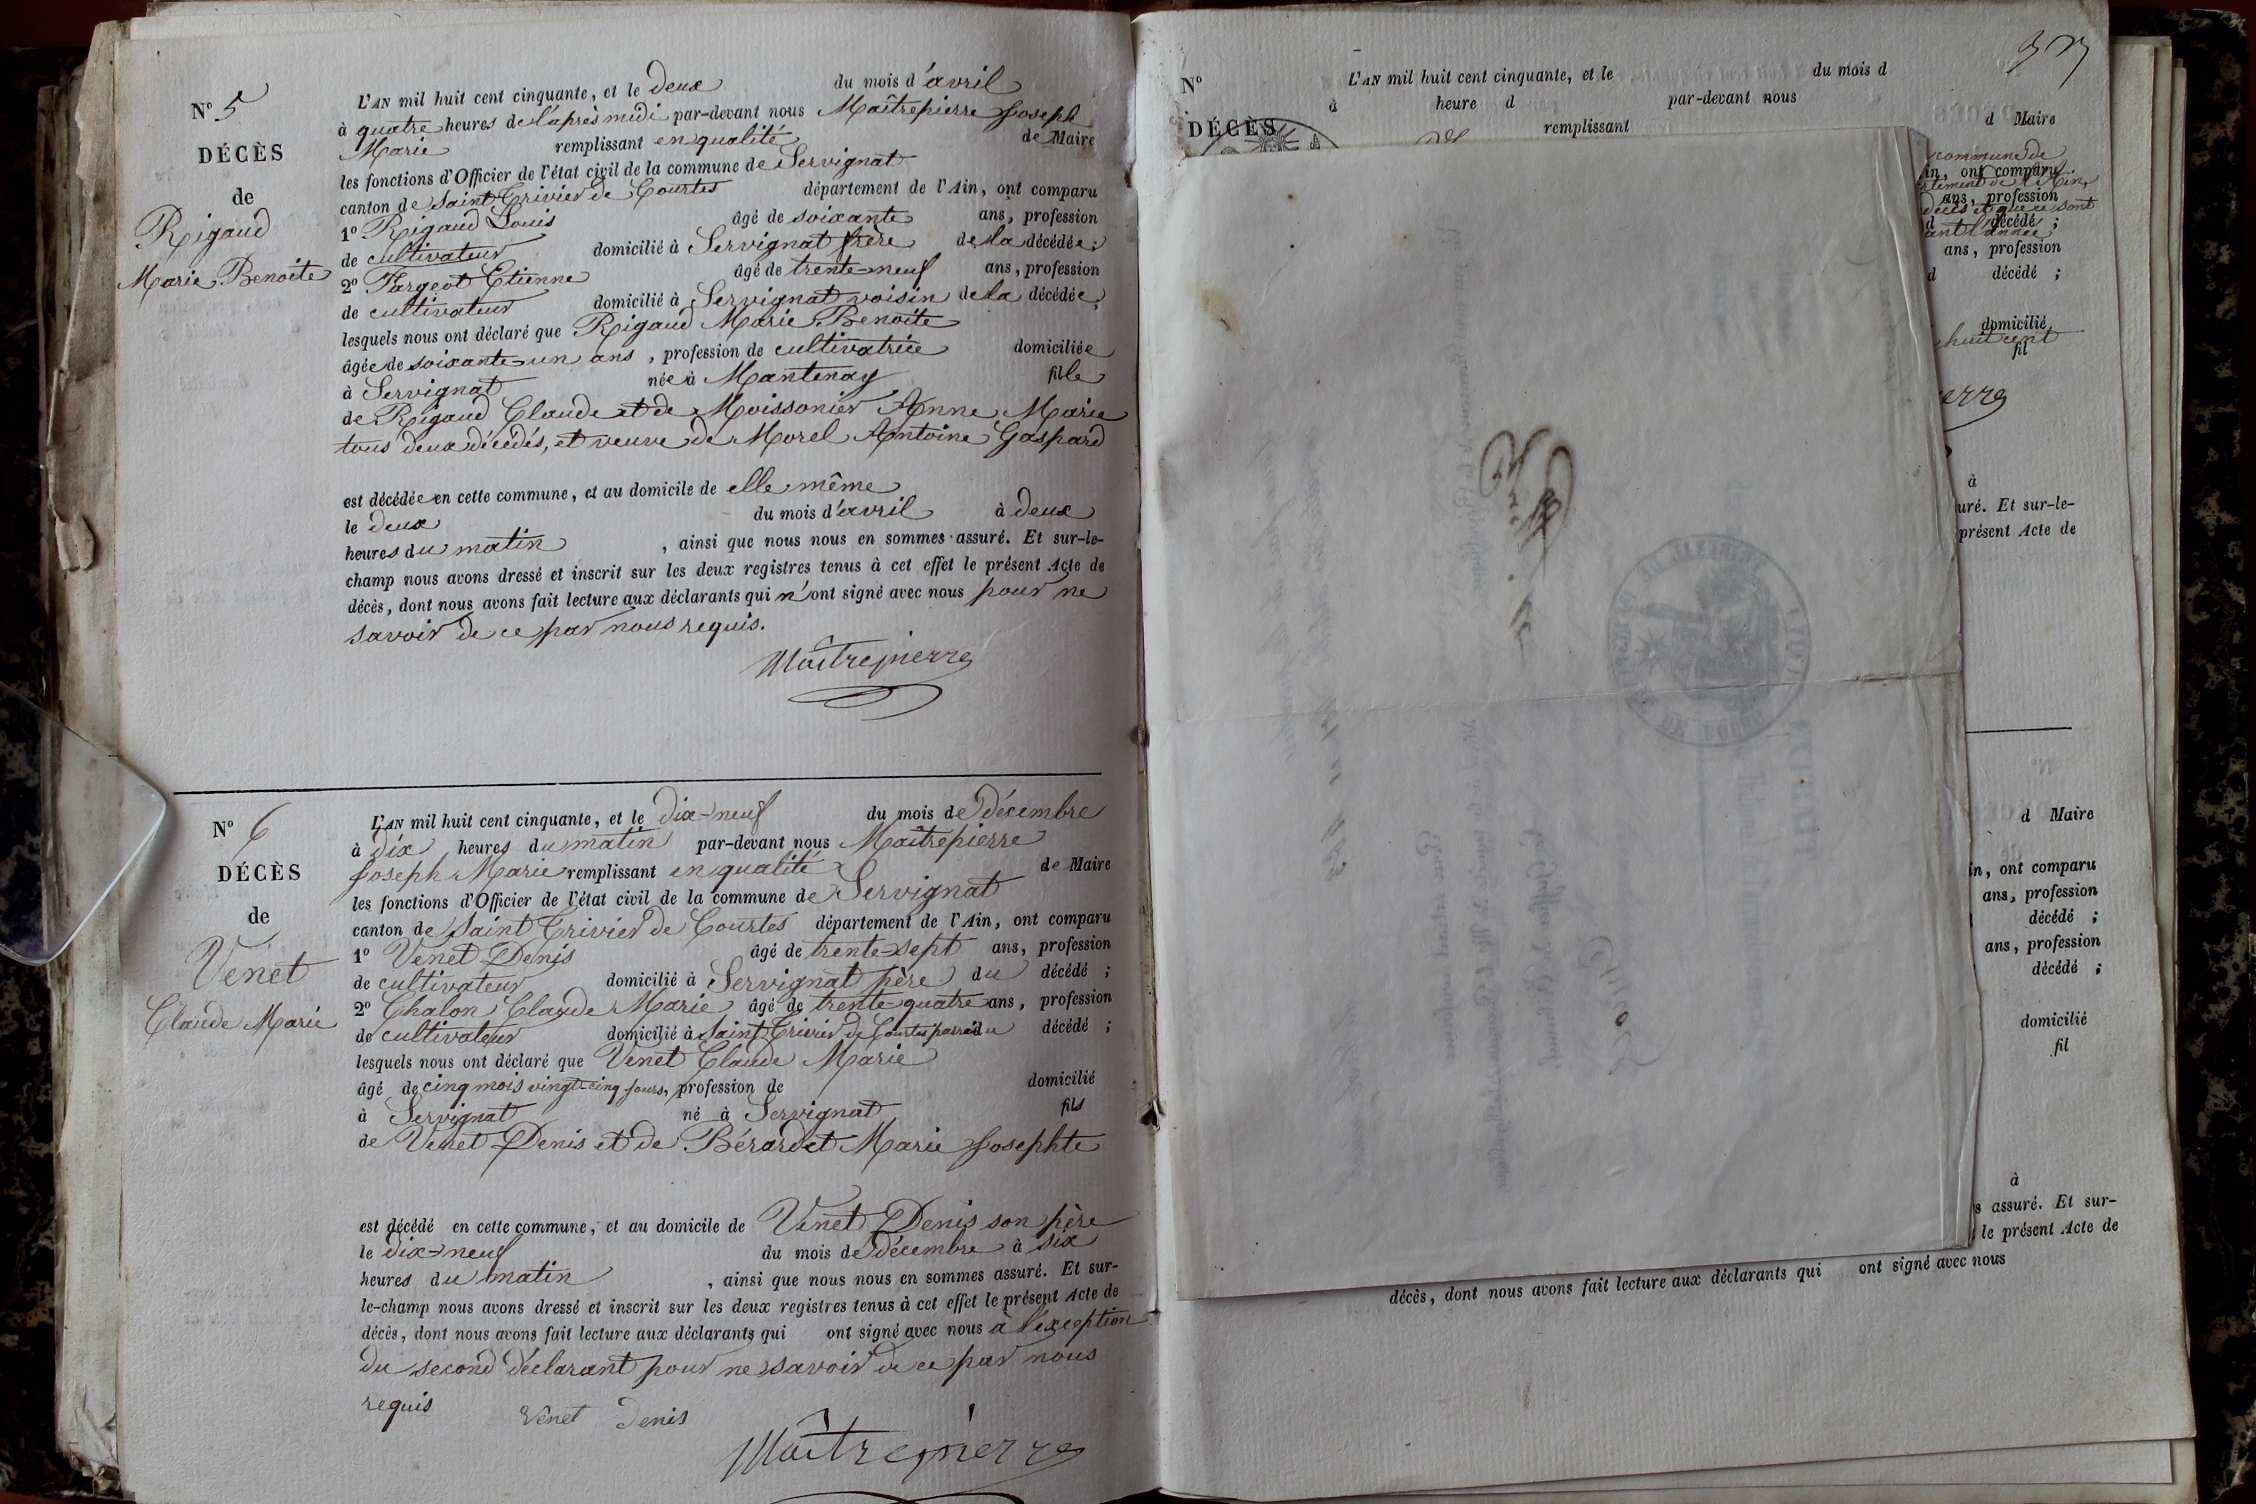 N° 5
DÉCÈS
de
Rigaud
Marie Benoite
L'AN mil huit cent cinquante, et le deux du mois d'avril
à quatre heures de l'après midi par-devant nous Maîtrepierre Joseph
Marie remplissant en qualité de Maire
les fonctions d'Officier de l'état civil de la commune de Servignat
canton de Saint Trivier de Courtes département de l'Ain, ont comparu
1° Rigaud Louis âgé de soixante ans, profession
de cultivateur domicilié à Servignat frère de la décédée ;
2° Fargeot Etienne âgé de trente-neuf ans, profession
de cultivateur domicilié à Servignat voisin de la décédée ;
lesquels nous ont déclaré que Rigaud Marie Benoite
âgée de soixante-un ans, profession de cultivatrice domiciliée
à Servignat née à Mantenay fille
de Rigaud Claude et de Moissonier Anne Marie
tous deux décédés, et veuve de Morel Antoine Gaspard
est décédée en cette commune, et au domicile de elle même
le deux du mois d'avril à deux
heures du matin, ainsi que nous nous en sommes assuré. Et sur-le-
champ nous avons dressé et inscrit sur les deux registres tenus à cet effet le présent Acte de
décès, dont nous avons fait lecture aux déclarants qui n'ont signé avec nous pour ne
savoir de ce par nous requis.
Maîtrepierre
N° 6
DÉCÈS
de
Venet
Claude Marie
L'AN mil huit cent cinquante, et le dix-neuf du mois de Décembre
à dix heures du matin par-devant nous Maîtrepierre
Joseph Marie remplissant en qualité de Maire
les fonctions d'Officier de l'état civil de la commune de Servignat
canton de Saint Trivier de Courtes département de l'Ain, ont comparu
1° Venet Denis âgé de trente-sept ans, profession
de cultivateur domicilié à Servignat père du décédé ;
2° Chalon Claude Marie âgé de trente-quatre ans, profession
de cultivateur domicilié à Saint Trivier de Courtes parrain du décédé ;
lesquels nous ont déclaré que Venet Claude Marie
âgé de cinq mois vingt-cinq jours, profession de domicilié
à Servignat né à Servignat fils
de Venet Denis et de Bérardet Marie Josephte
est décédé en cette commune, et au domicile de Venet Denis son père
le dix-neuf du mois de Décembre à six
heures du matin, ainsi que nous nous en sommes assuré. Et sur-
le-champ nous avons dressé et inscrit sur les deux registres tenus à cet effet le présent Acte de
décès, dont nous avons fait lecture aux déclarants qui ont signé avec nous à l'éxception
du second déclarant pour ne savoir de ce par nous
requis
Venet Denis
Maîtrepierre
N°
DÉCÈS
L'AN mil huit cent cinquante, et le du mois d
à heure d par-devant nous
remplissant d Maire
commune de
in, ont comparu
ans, profession
d décédé ;
ans, profession
d décédé ;
domicilié
huit cent
fil
erre
à
uré. Et sur-le-
présent Acte de
d Maire
in, ont comparu
ans, profession
décédé ;
ans, profession
décédé ;
domicilié
fil
à
s assuré. Et sur-
le présent Acte de
décès, dont nous avons fait lecture aux déclarants qui ont signé avec nous